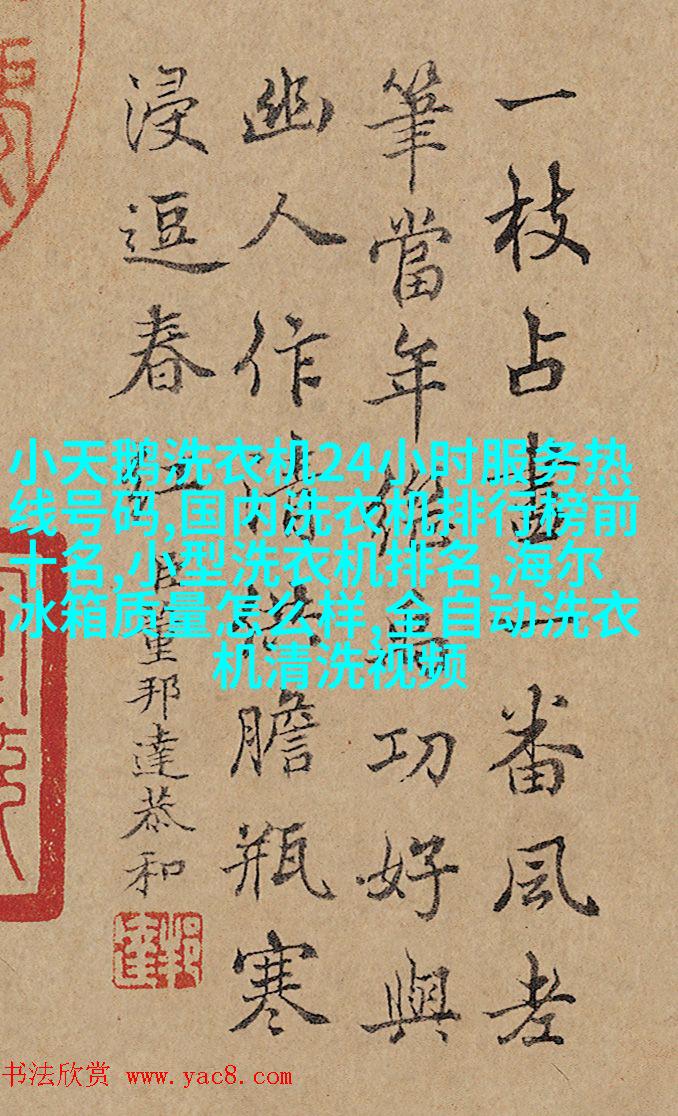 一枝占一番風老
筆當年功好與
幽人作清供膽瓶寒
浸逗春紅
臣董邦達恭和
小天鹅洗衣机24小时服务热
线号码,国内洗衣机排行榜前
十名,小型洗衣机排名,海尔
冰箱质量怎么样,全自动洗衣
机清洗视频
书法欣赏 www.yac8.com